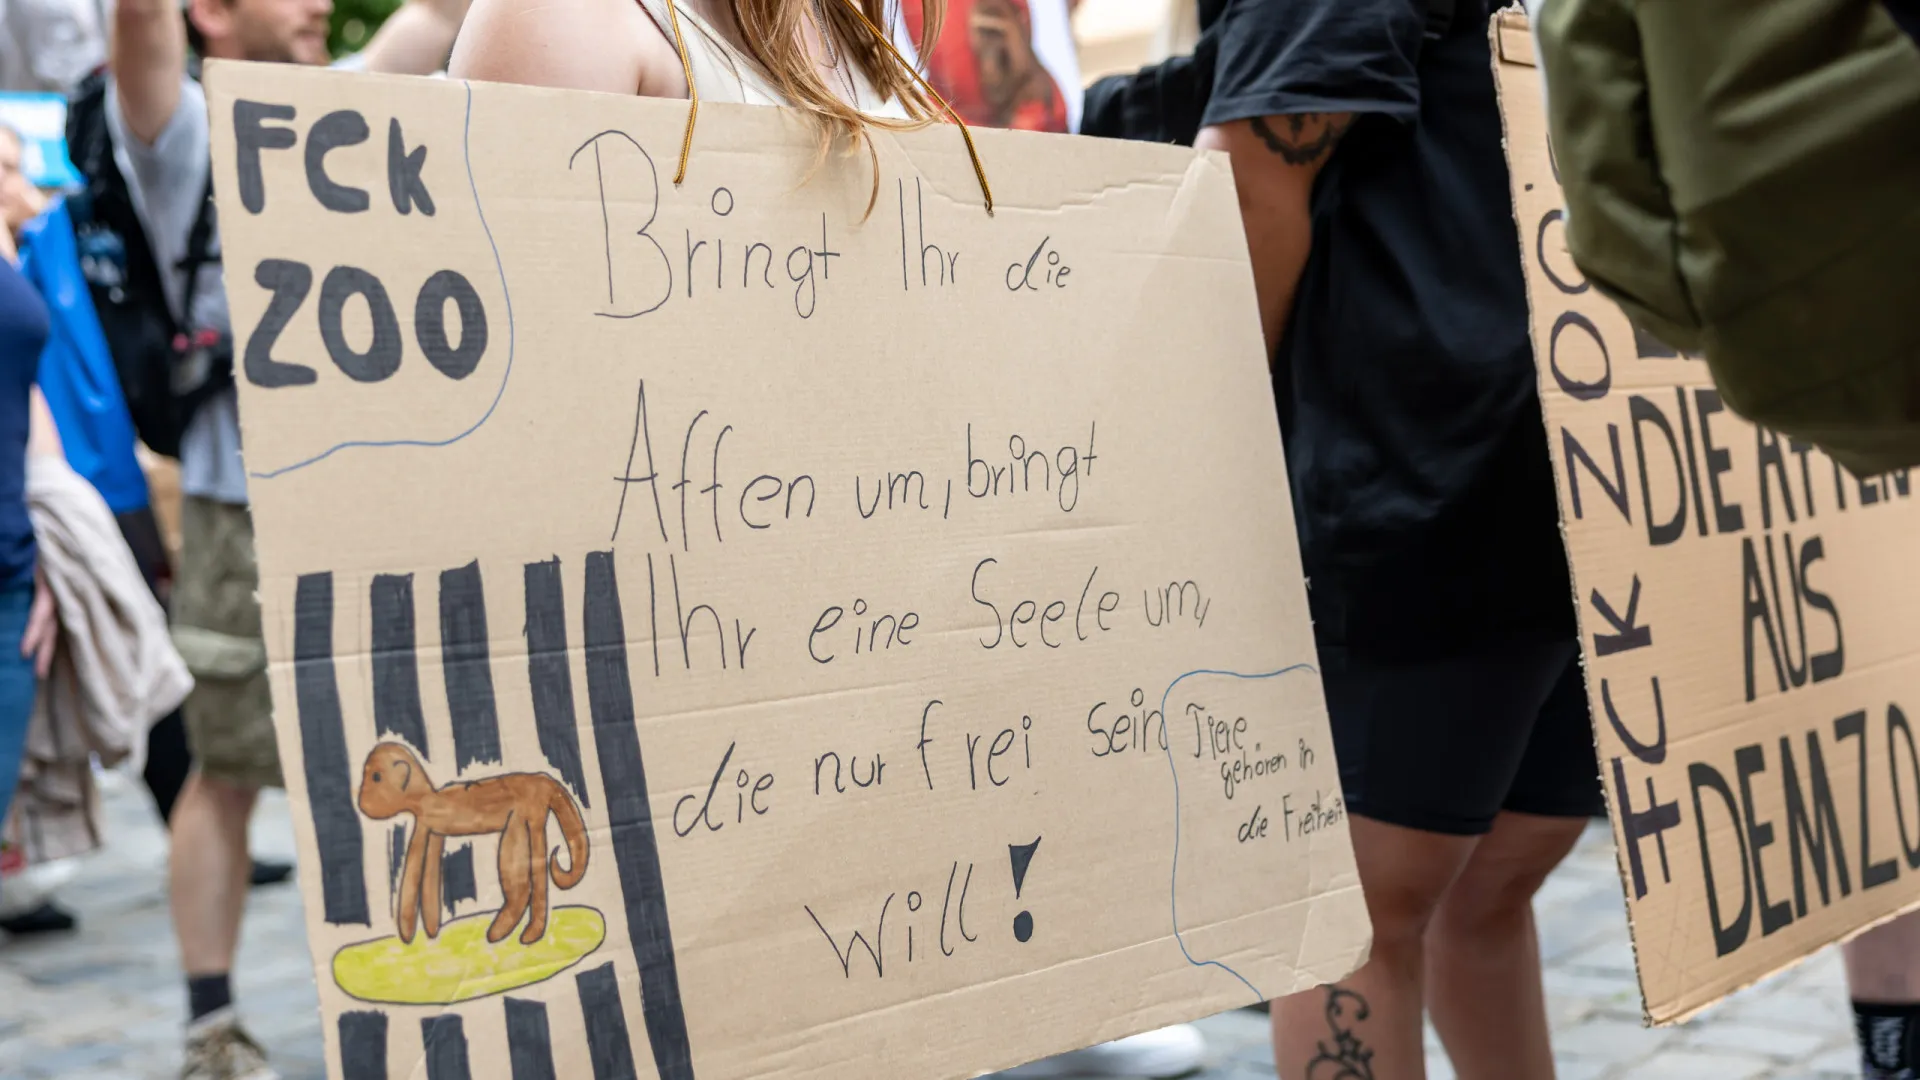 FCk
ZOO
Bringt Ihr die
Affen um, bringt
Ihr eine Seele um,
die nur frei sein
Will!
Tiere
gehören in
die Freiheit
FCK ZOO
DIE AFFEN
AUS
DEM ZO